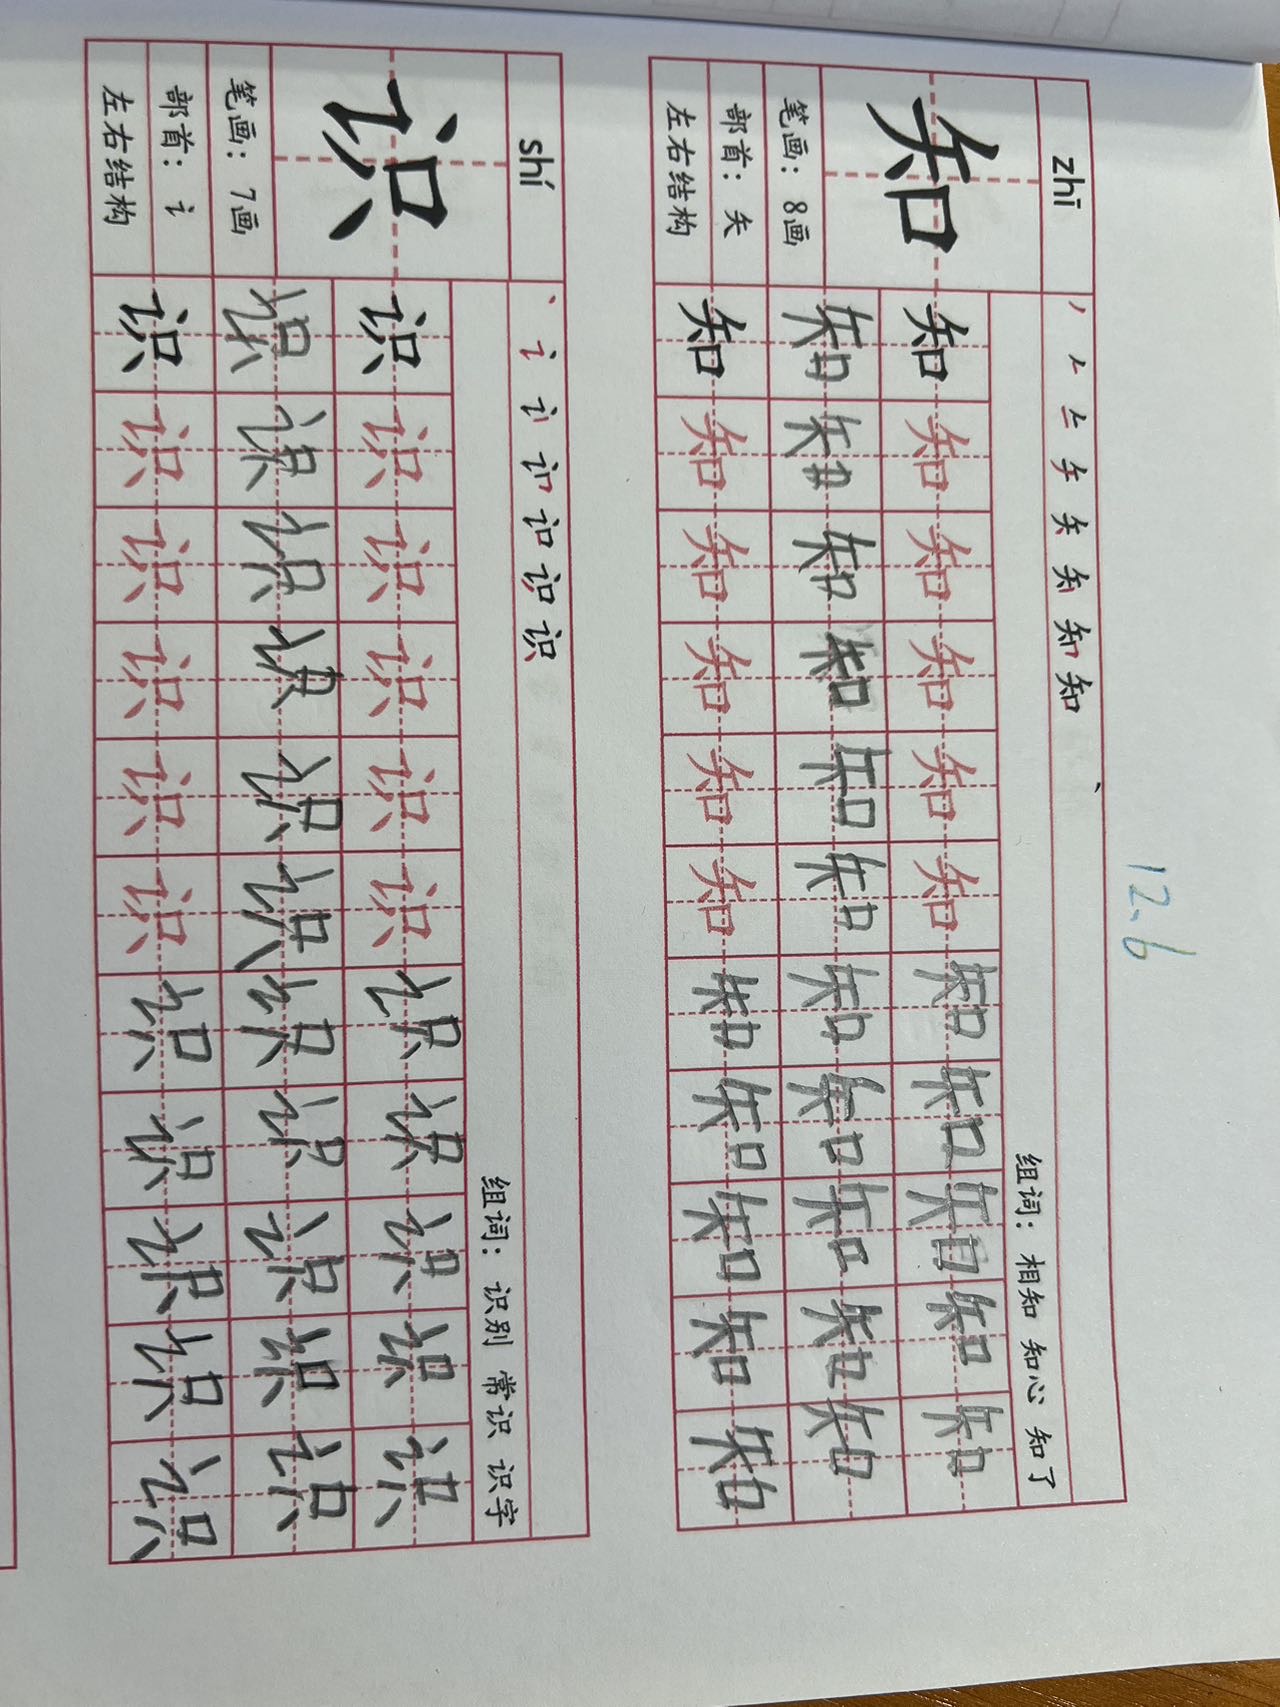 12.6
zhī 丿 𠂉 午 矢 知 知
组词：相知 知心 知了
知
知 知 知 知 知 知 知 知 知 知 知
笔画：8画
知 知 知 知 知 知 知 知 知 知 知
部首：矢
知 知 知 知 知 知 知 知 知 知 知
左右结构
shí 丶 讠 订 识 识
组词：识别 常识 识字
识
识 识 识 识 识 识 识 识 识 识 识
笔画：7画
识 识 识 识 识 识 识 识 识 识 识
部首：讠
识 识 识 识 识 识 识 识 识 识 识
左右结构